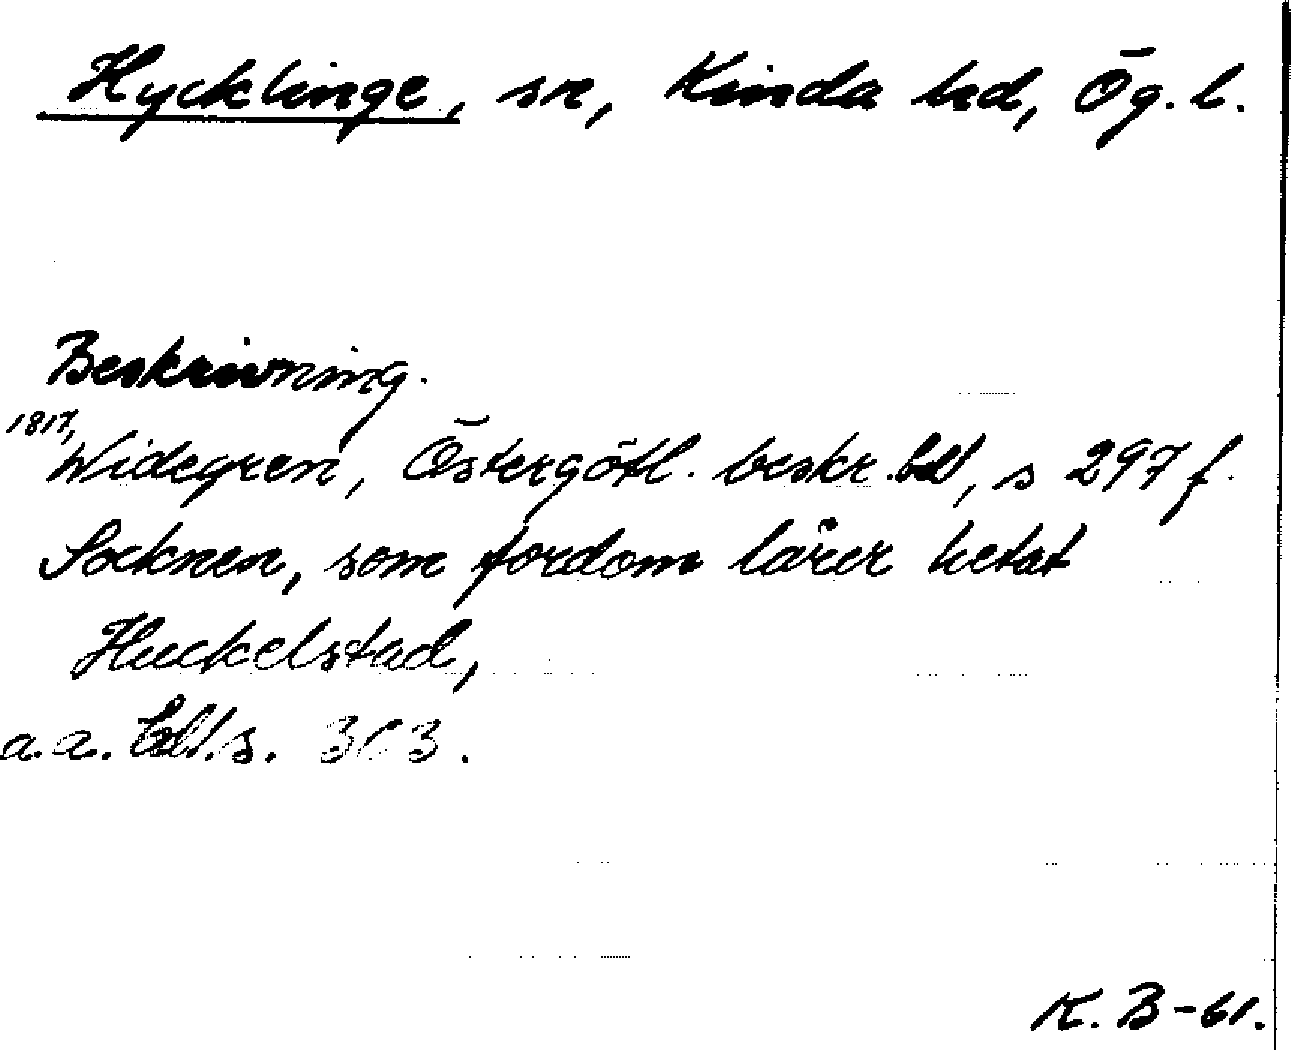 Hycklinge, sn, Kinda hd, Ög. l.
Beskrivning.
1817,
Widegren, Östergötl. beskr. bd1, s 297 f.
Socknen, som fordom lärer hetat
Huckelstad,
a.a. bd1. s. 303.
K. B-61.